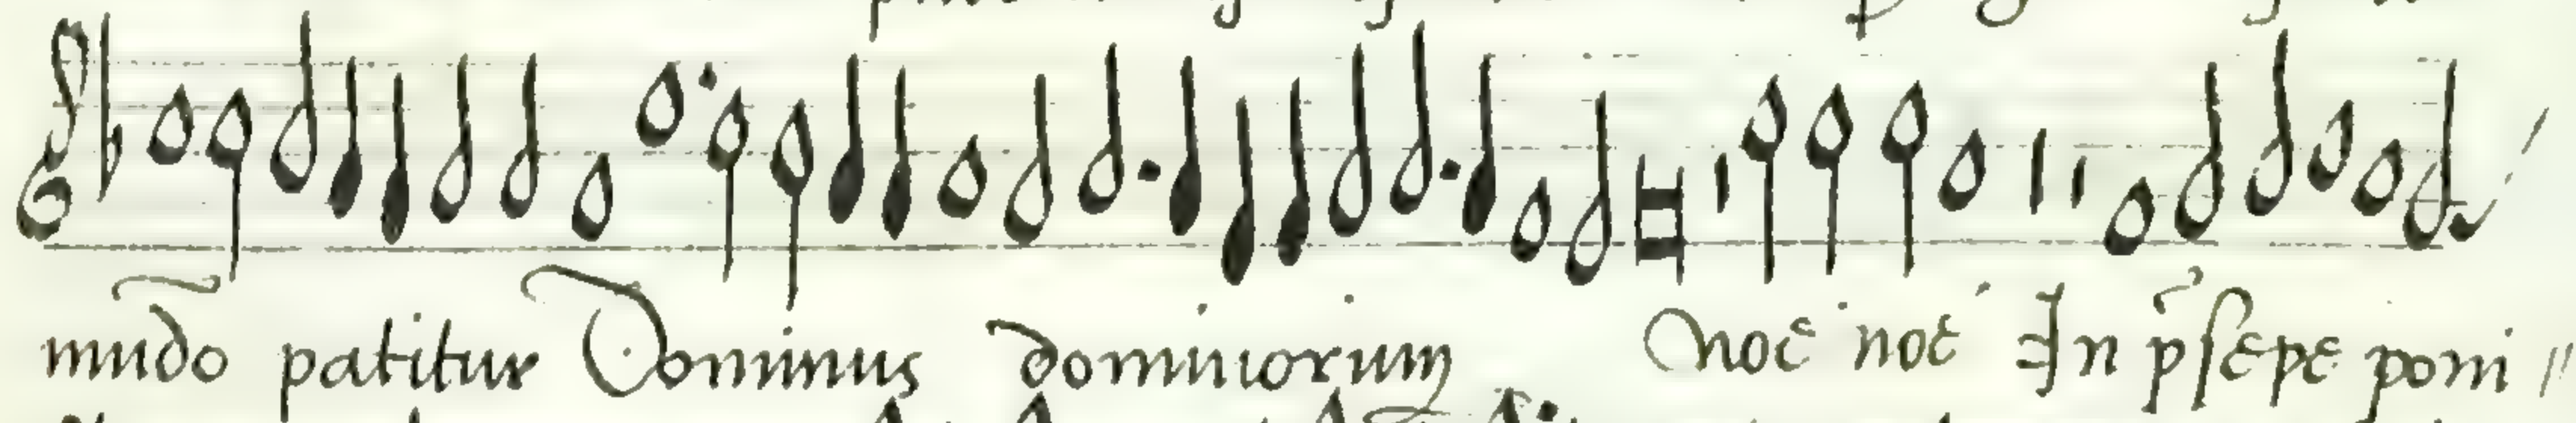 mũdo patitur Dominus dominorum Noe noe In p̃sepe poni